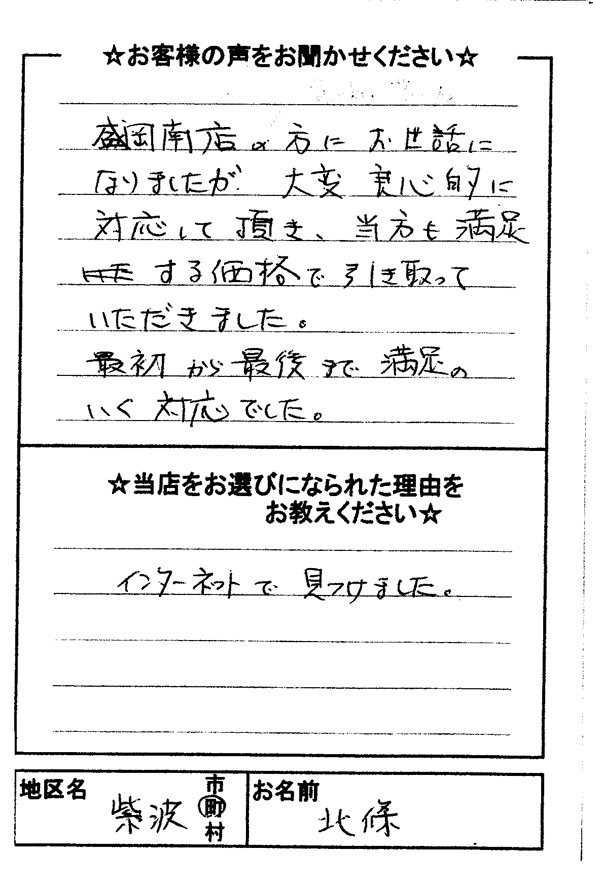 ☆お客様の声をお聞かせください☆
盛岡南店の方にお世話に
なりましたが 大変良心的に
対応して頂き、当方も満足
する価格で引き取って
いただきました。
最初から最後まで満足の
いく対応でした。
☆当店をお選びになられた理由を
お教えください☆
インターネットで見つけました。
地区名 紫波 市町村 お名前 北條